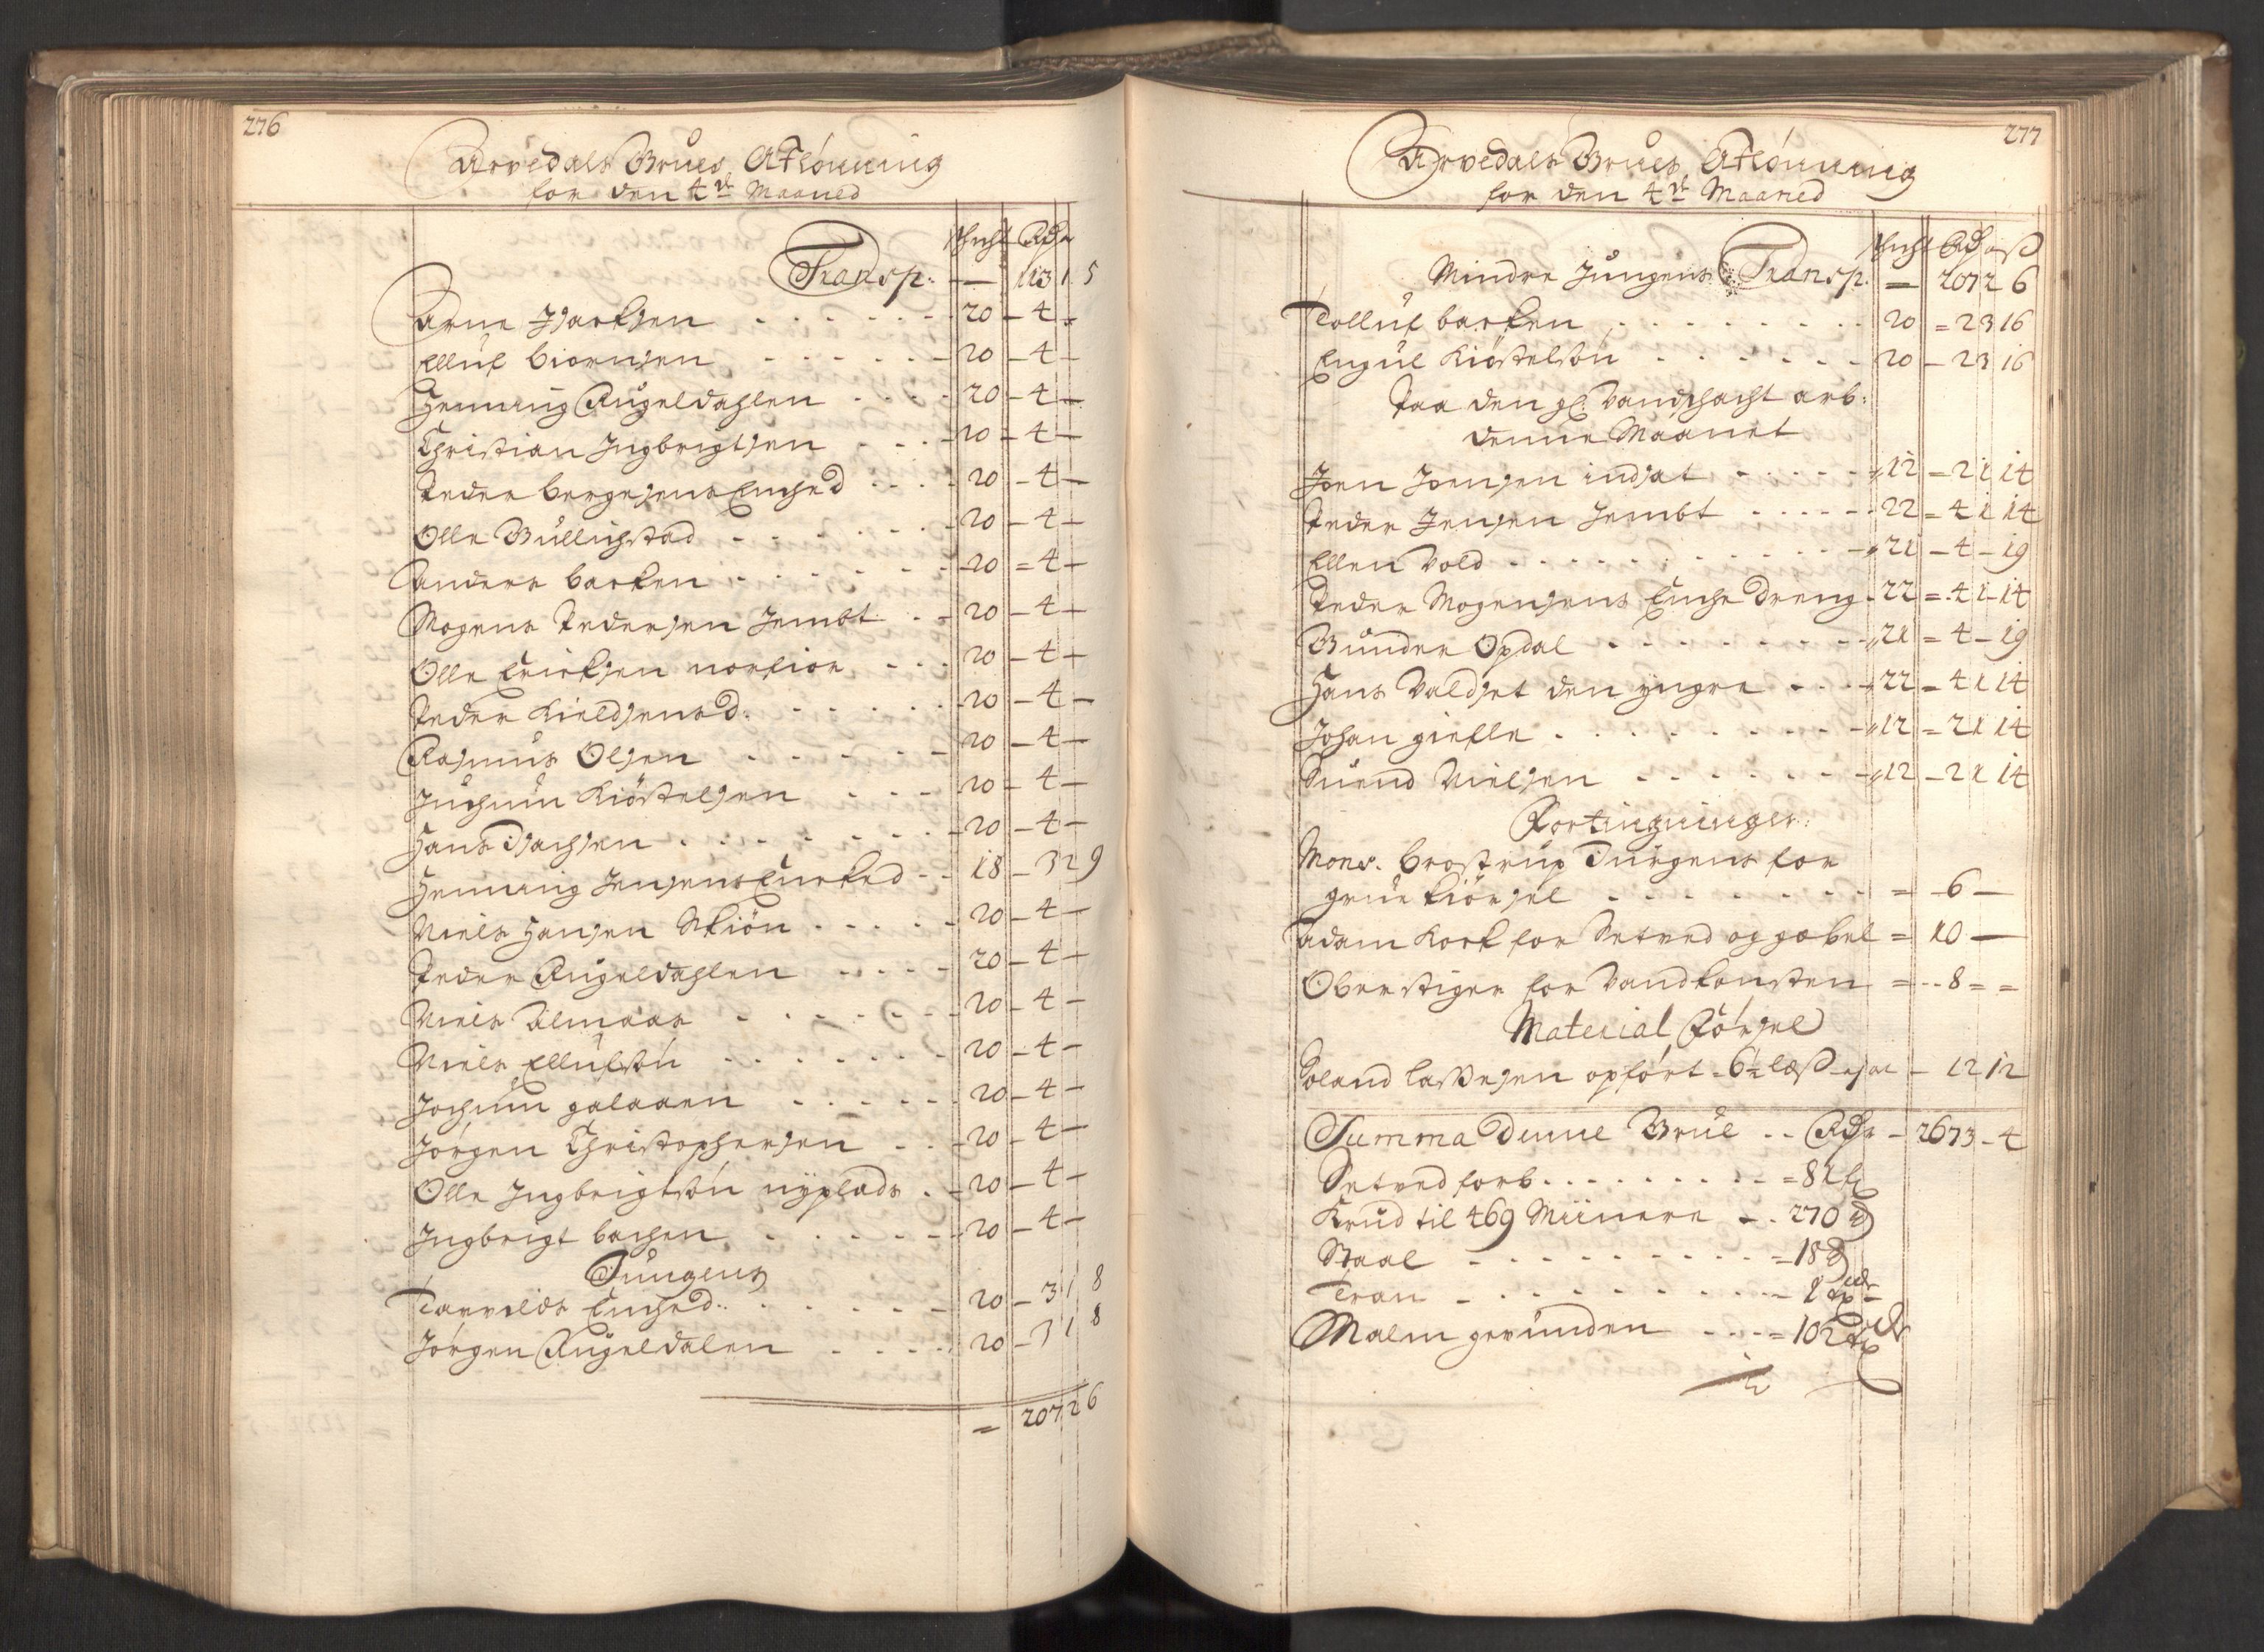 276
Arvedals Grues Aflønning
for den 4de Maaned
Schicht Rdr
Transp: — 113 1 5
Arne Isachsen 20 – 4 –
Elluf Biørnsen 20 – 4 –
Henning Rugeldahlen 20 – 4 –
Christian Ingbrigtsen 20 – 4 –
Peder Bergesens Enched 20 – 4 –
Olle Bullichstad 20 – 4 –
Anders Backen 20 – 4 –
Mogens Pedersen Jembt 20 – 4 –
Olle Ericksen 20 – 4 –
Peder Kieldsens d. 20 – 4 –
Rasmus Olsen 20 – 4 –
Jochum Kiøstelsen 20 – 4 –
Hans Isachsen 20 – 4 –
Henning Jensens Encked 18 – 3 2 9
Niels Hansen Skiøn 20 – 4 –
Peder Rugeldahlen 20 – 4 –
Niels Almaas 20 – 4 –
Niels Ellufsøn 20 – 4 –
Jochum galaaen 20 – 4 –
Jørgen Christophersen 20 – 4 –
Olle Ingbrigtsøn nyplads 20 – 4 –
Ingbrigt bachen 20 – 4 –
Jungens
Enched 20 – 3 1 8
Jørgen Rugeldalen 20 – 3 1 8
= 207 2 6
277
Arvedals Grues Aflønning
for den 4de Maaned
Schicht Rdr ß
Mindre Jungens Transp. — 207 2 6
Tolluf backen 20 = 2 3 16
Engul Kiøstelsøn 20 – 2 3 16
Paa den gl. Vandschacht arb:
denne Maanet
Joen Joensen indsat 12 – 2 1 14
Peder Jensen Jembt 22 = 4 1 14
Ellen Vold 21 – 4 – 19
Peder Mogensens Enche dreng 22 = 4 1 14
Gunder Opdal 21 = 4 – 19
Hans Valdset den yngre 22 = 4 1 14
Johan gielle 12 = 2 1 14
Suend Nielsen 12 – 2 1 14
Fortingninger:
Mons. Brostrup Jürgens for
grue kiørsel = 6 —
Adam Kock for Setved og gøbel = 10 —
Oberstiger for Vandkonsten = 8 = =
Material Førsel
Roland Lassesen opført 6½ læs – 1 2 12
Summa denne Grue Rdr – 267 3 – 4
Setved forb. = 81 f
Krud til 469 Miinere 270 ℔
Staal = 18 ℔
Tran 1
Malm gevunden = 102